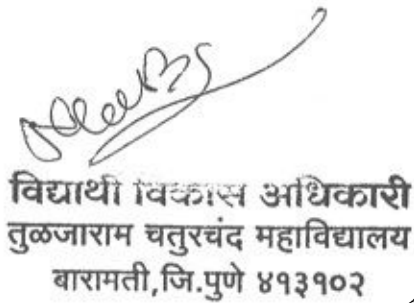 विद्यार्थी विकास अधिकारी
तुळजाराम चतुरचंद महाविद्यालय
बारामती,जि.पुणे ४१३१०२